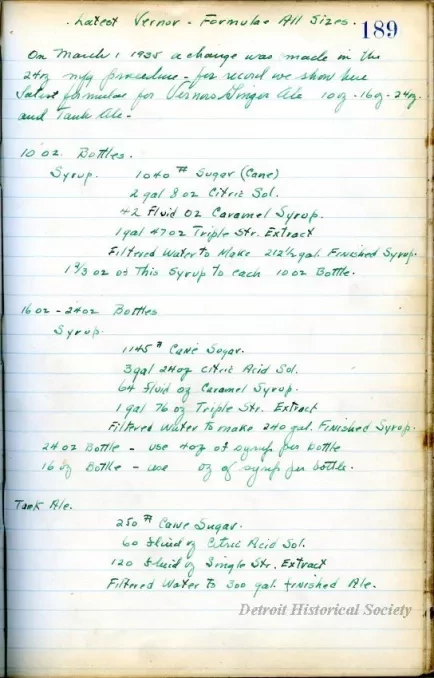 Latest Vernor - Formulae All Sizes.
189
On March 1 1935 a change was made in the
24oz mfg procedure - for record we show here
latest formulae for Vernors Ginger Ale 10oz - 16oz - 24oz
and Tank Ale -
10 oz. Bottles.
Syrup. 1040 # Sugar (Cane)
2 gal 8 oz Citric Sol.
42 Fluid oz Caramel Syrup.
1 gal 47 oz Triple Str. Extract
Filtered Water to Make 212½ gal. Finished Syrup.
1 9/3 oz of This Syrup to each 10 oz Bottle.
16 oz - 24oz Bottles
Syrup.
1145 # Cane Sugar.
3 gal 24oz Citric Acid Sol.
64 fluid oz Caramel Syrup.
1 gal 76 oz Triple Str. Extract
Filtered Water to make 240 gal. Finished Syrup.
24 oz Bottle - use 4oz of syrup per bottle
16 oz Bottle - use oz of syrup per bottle.
Tank Ale.
250 # Cane Sugar.
60 fluid oz Citric Acid Sol.
120 fluid oz Single Str. Extract
Filtered Water to 300 gal. finished Ale.
Detroit Historical Society